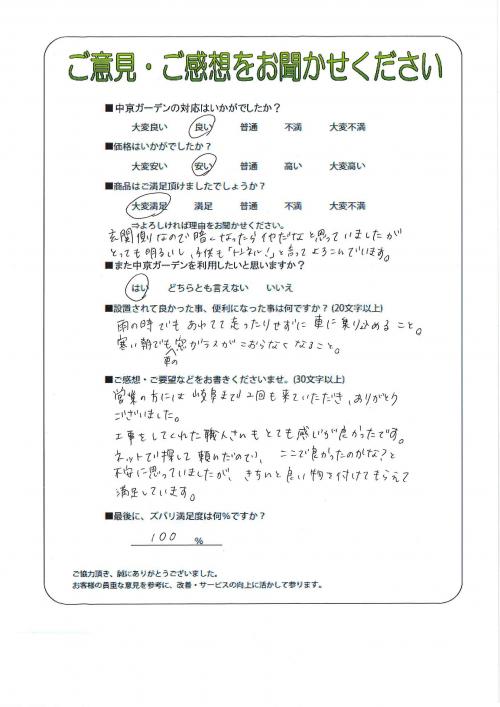 ご意見・ご感想をお聞かせください
■中京ガーデンの対応はいかがでしたか？
大変良い 良い 普通 不満 大変不満
■価格はいかがでしたか？
大変安い 安い 普通 高い 大変高い
■商品はご満足頂けましたでしょうか？
大変満足 満足 普通 不満 大変不満
⇒よろしければ理由をお聞かせください。
玄関側なので暗くなったらイヤだなと思っていましたが
とっても明るいし、子供も「トンネル！」と言ってよろこんでいます。
■また中京ガーデンを利用したいと思いますか？
はい どちらとも言えない いいえ
■設置されて良かった事、便利になった事は何ですか？(20文字以上)
雨の時でもあわてて走ったりせずに車に乗り込めること。
寒い朝でも車の窓ガラスがこおらなくなること。
■ご感想・ご要望などをお書きくださいませ。(30文字以上)
営業の方には岐阜まで2回も来ていただき、ありがとう
ございました。
工事をしてくれた職人さんもとても感じが良かったです。
ネットで探して頼んだので、ここで良かったのかな？と
不安に思っていましたが、きちんと良い物を付けてもらえて
満足しています。
■最後に、ズバリ満足度は何％ですか？
100 ％
ご協力頂き、誠にありがとうございました。
お客様の貴重な意見を参考に、改善・サービスの向上に活かして参ります。